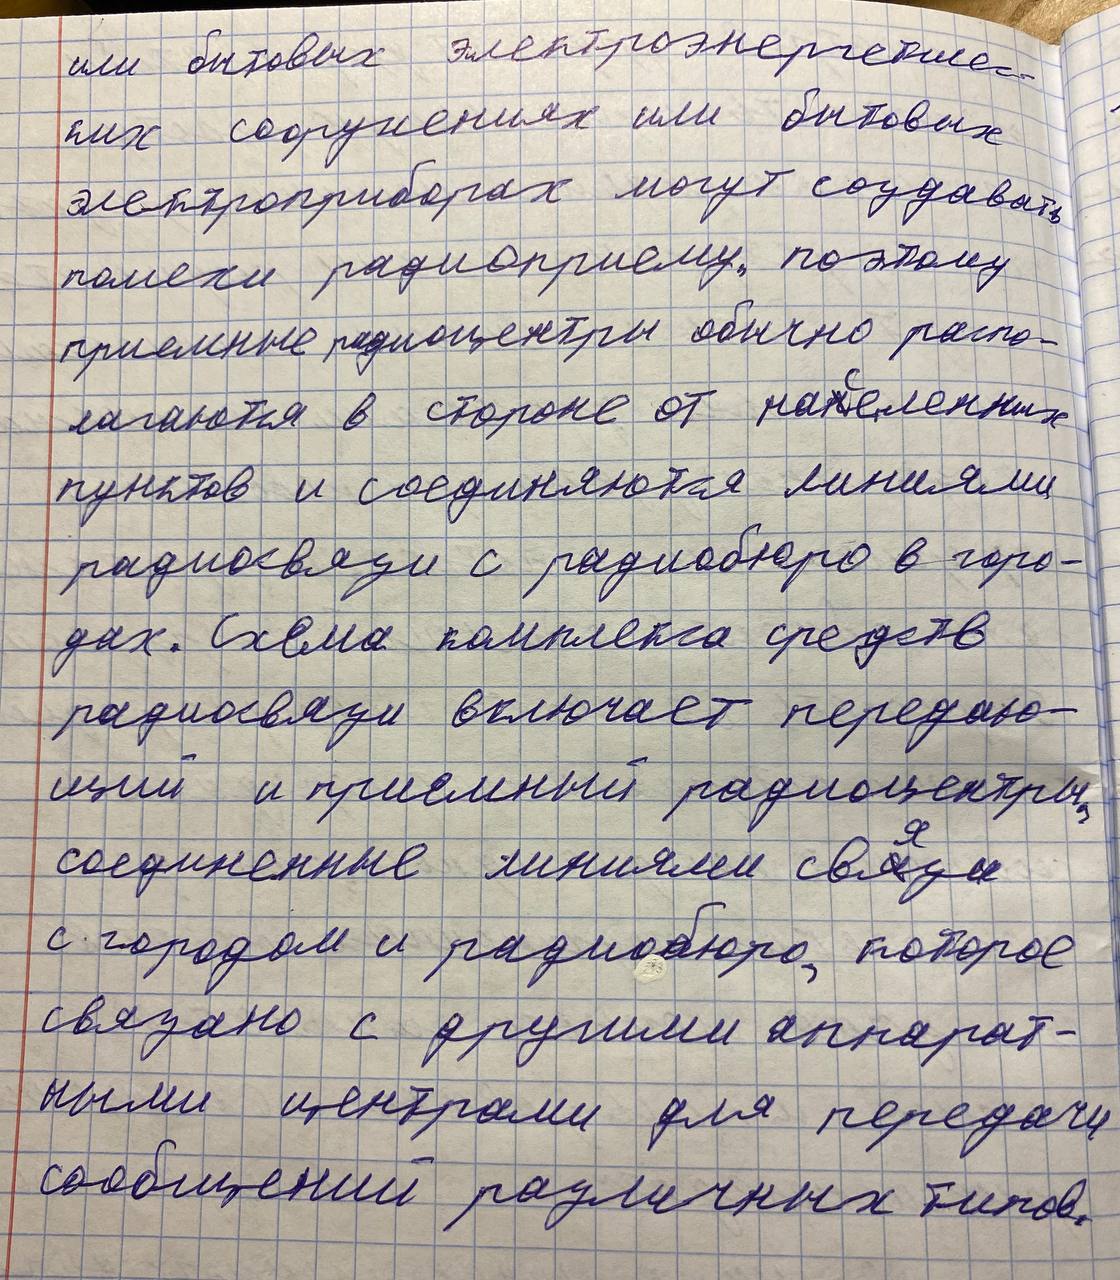 или бытовых электроэнергетичес-
ких сооружениях или бытовых
электроприборах могут создавать
помехи радиоприему, поэтому
приемные радиоцентры обычно распо-
лагаются в стороне от населенных
пунктов и соединяются линиями
радиосвязи с радиобюро в горо-
дах. Схема комплекса средств
радиосвязи включает передаю-
щий и приемный радиоцентры,
соединенные линиями связи
с городом и радиобюро, которое
связано с другими аппарат-
ными центрами для передачи
сообщений различных типов.